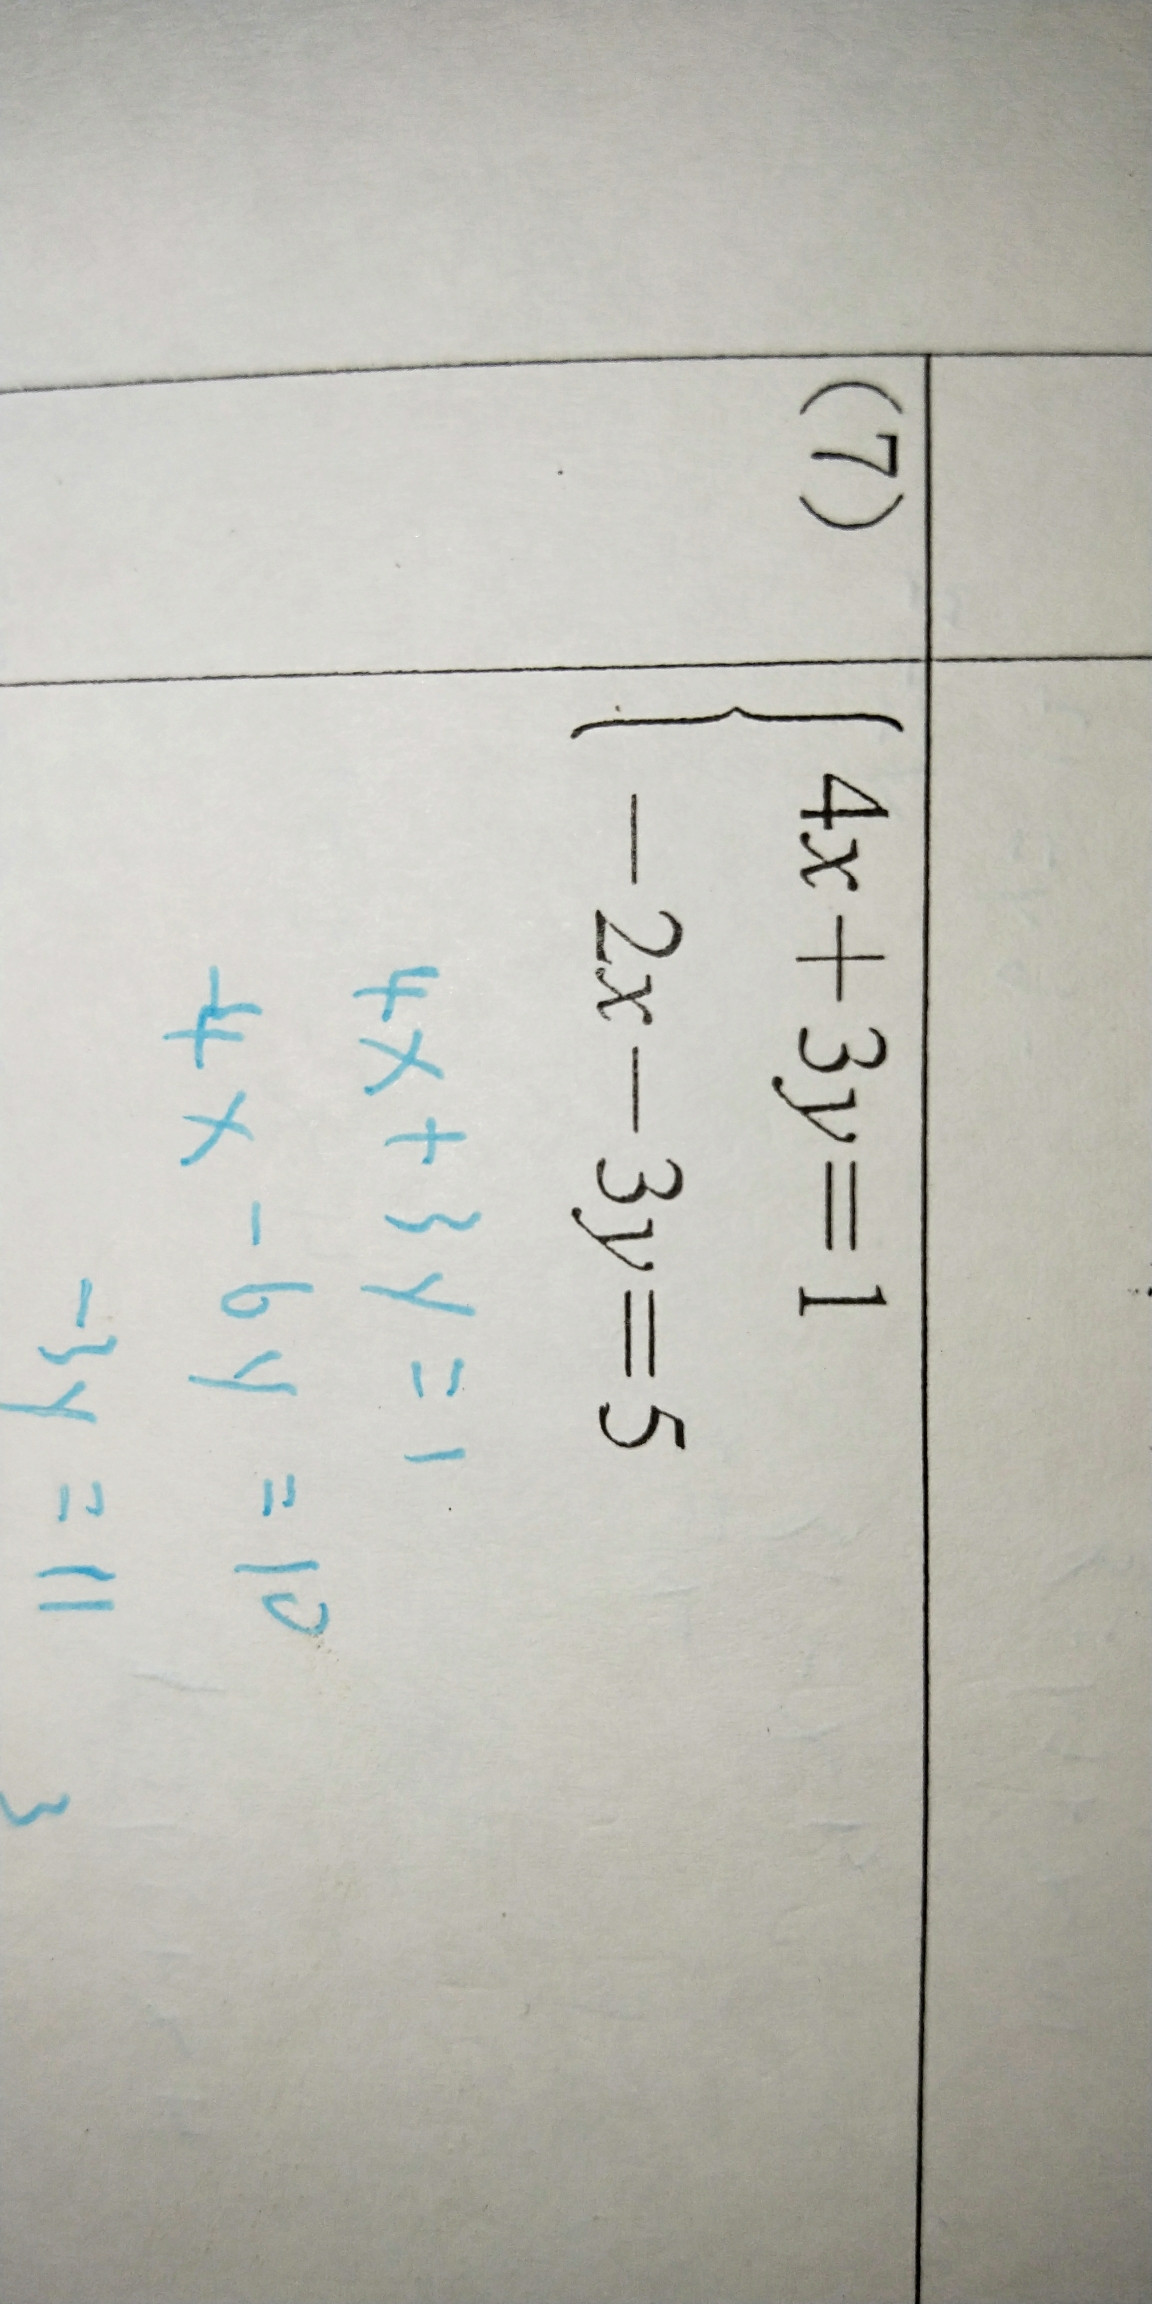 (7) { 4x+3y=1
-2x-3y=5
4x+3y=1
-4x-6y=10
-3y=11
3